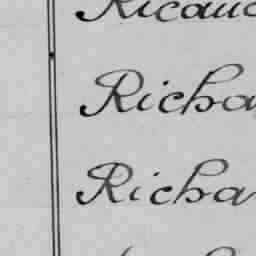 Ricau
Richa
Richa